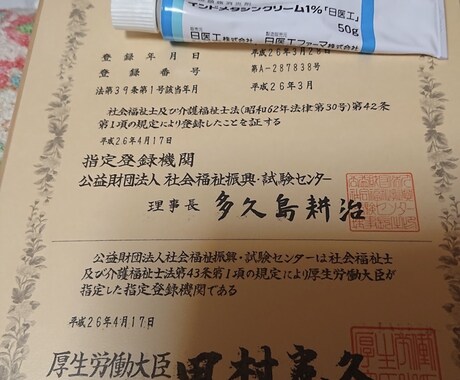 インドメタシンクリーム1%「日医工」
50g
日医工株式会社
日医工ファーマ株式会社
登録年月日 平成26年3月28日
登録番号 第A-287838号
法第39条第1号該当年月 平成26年3月
社会福祉士及び介護福祉士法(昭和62年法律第30号)第42条
第1項の規定により登録したことを証する
平成26年4月17日
指定登録機関
公益財団法人 社会福祉振興・試験センター
理事長 多久島耕治
公益財団法人社会福祉振興・試験センターは社会福祉士
及び介護福祉士法第43条第1項の規定により厚生労働大臣が
指定した指定登録機関である
平成26年4月17日
厚生労働大臣 田村憲久